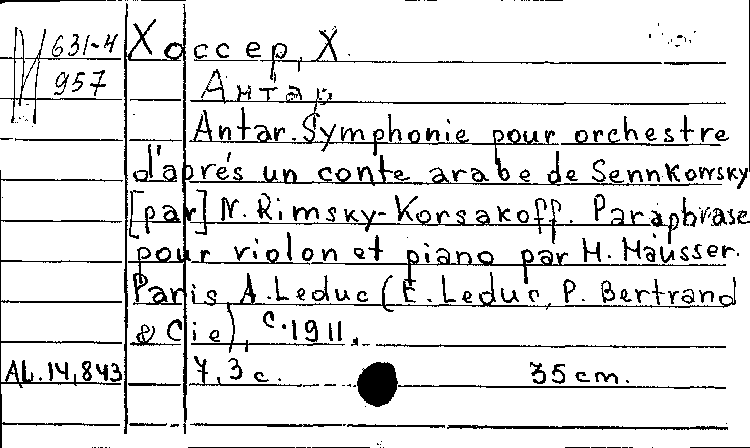 М 631-4
957
Хоссер, Х.
Антар
Antar. Symphonie pour orchestre
d'aprés un conte arabe de Sennkowsky
[par] N. Rimsky-Korsakoff. Paraphrase
pour violon et piano par H. Häusser.
Paris, A. Leduc (E. Leduc, P. Bertrand
& Cie), c. 1911.
AL.14,843 7,3 c. 35 cm.